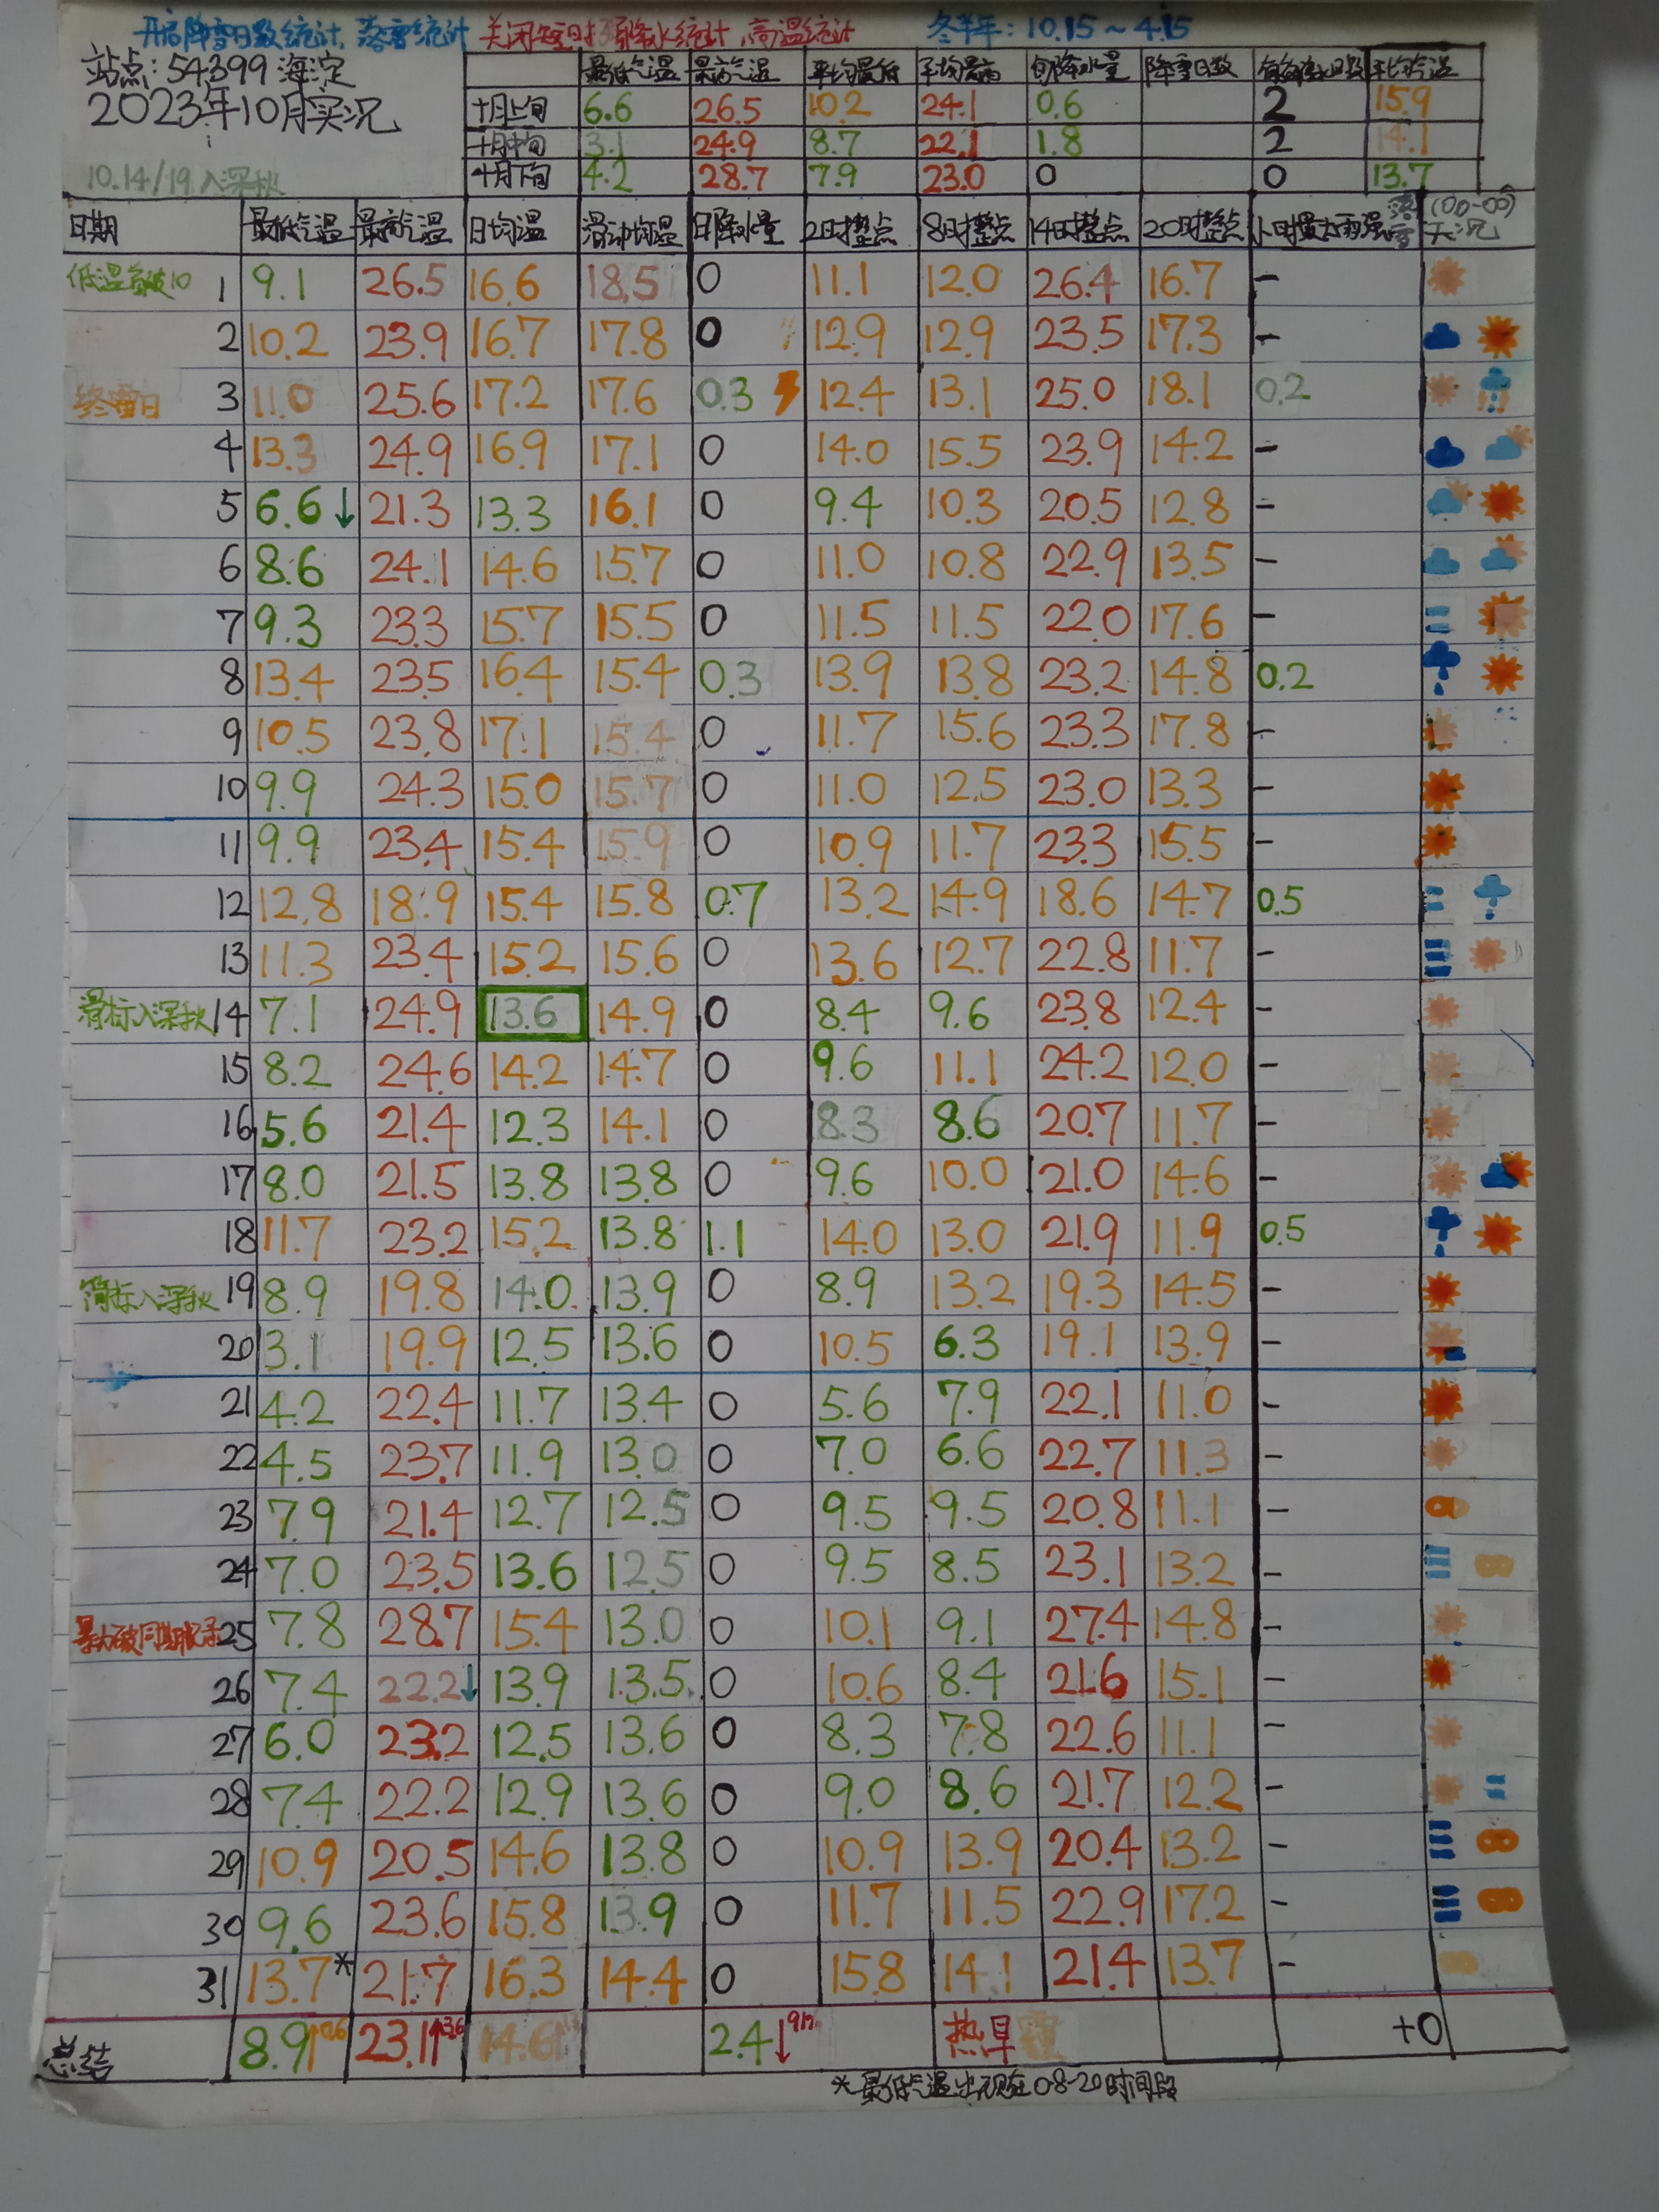 开启降雪日数统计,落雪统计 关闭短时强降水统计,高温统计 冬半年:10.15~4.15
站点:54399海淀
2023年10月实况
10.14/19入深秋
最低气温 最高气温 平均最低 平均最高 旬降水量 降雪日数 平均气温
十月上旬 6.6 26.5 10.2 24.1 0.6 2 15.9
十月中旬 3.1 24.9 8.7 22.1 1.8 2 14.1
十月下旬 4.2 28.7 7.9 23.0 0 0 13.7
日期 最低气温 最高气温 日均温 滑动均温 日降水量 2时整点 8时整点 14时整点 20时整点 小时最大雨强 (00-00)天况
低温首破10 1 9.1 26.5 16.6 18.5 0 11.1 12.0 26.4 16.7 -
2 10.2 23.9 16.7 17.8 0 12.9 12.9 23.5 17.3 -
终雷日 3 11.0 25.6 17.2 17.6 0.3 12.4 13.1 25.0 18.1 0.2
4 13.3 24.9 16.9 17.1 0 14.0 15.5 23.9 14.2 -
5 6.6↓ 21.3 13.3 16.1 0 9.4 10.3 20.5 12.8 -
6 8.6 24.1 14.6 15.7 0 11.0 10.8 22.9 13.5 -
7 9.3 23.3 15.7 15.5 0 11.5 11.5 22.0 17.6 -
8 13.4 23.5 16.4 15.4 0.3 13.9 13.8 23.2 14.8 0.2
9 10.5 23.8 17.1 15.4 0 11.7 15.6 23.3 17.8 -
10 9.9 24.3 15.0 15.7 0 11.0 12.5 23.0 13.3 -
11 9.9 23.4 15.4 15.9 0 10.9 11.7 23.3 15.5 -
12 12.8 18.9 15.4 15.8 0.7 13.2 14.9 18.6 14.7 0.5
13 11.3 23.4 15.2 15.6 0 13.6 12.7 22.8 11.7 -
滑标入深秋 14 7.1 24.9 13.6 14.9 0 8.4 9.6 23.8 12.4 -
15 8.2 24.6 14.2 14.7 0 9.6 11.1 24.2 12.0 -
16 5.6 21.4 12.3 14.1 0 8.3 8.6 20.7 11.7 -
17 8.0 21.5 13.8 13.8 0 9.6 10.0 21.0 14.6 -
18 11.7 23.2 15.2 13.8 1.1 14.0 13.0 21.9 11.9 0.5
简标入深秋 19 8.9 19.8 14.0 13.9 0 8.9 13.2 19.3 14.5 -
20 3.1 19.9 12.5 13.6 0 10.5 6.3 19.1 13.9 -
21 4.2 22.4 11.7 13.4 0 5.6 7.9 22.1 11.0 -
22 4.5 23.7 11.9 13.0 0 7.0 6.6 22.7 11.3 -
23 7.9 21.4 12.7 12.5 0 9.5 9.5 20.8 11.1 -
24 7.0 23.5 13.6 12.5 0 9.5 8.5 23.1 13.2 -
暴力破同期纪录 25 7.8 28.7 15.4 13.0 0 10.1 9.1 27.4 14.8 -
26 7.4 22.2↓ 13.9 13.5 0 10.6 8.4 21.6 15.1 -
27 6.0 23.2 12.5 13.6 0 8.3 7.8 22.6 11.1 -
28 7.4 22.2 12.9 13.6 0 9.0 8.6 21.7 12.2 -
29 10.9 20.5 14.6 13.8 0 10.9 13.9 20.4 13.2 -
30 9.6 23.6 15.8 13.9 0 11.7 11.5 22.9 17.2 -
31 13.7* 21.7 16.3 14.4 0 15.8 14.1 21.4 13.7 -
总结 8.9↑0.6 23.1↑3.6 14.6↑ 2.4↓ 热旱 +0
*最低气温出现在08-20时间段